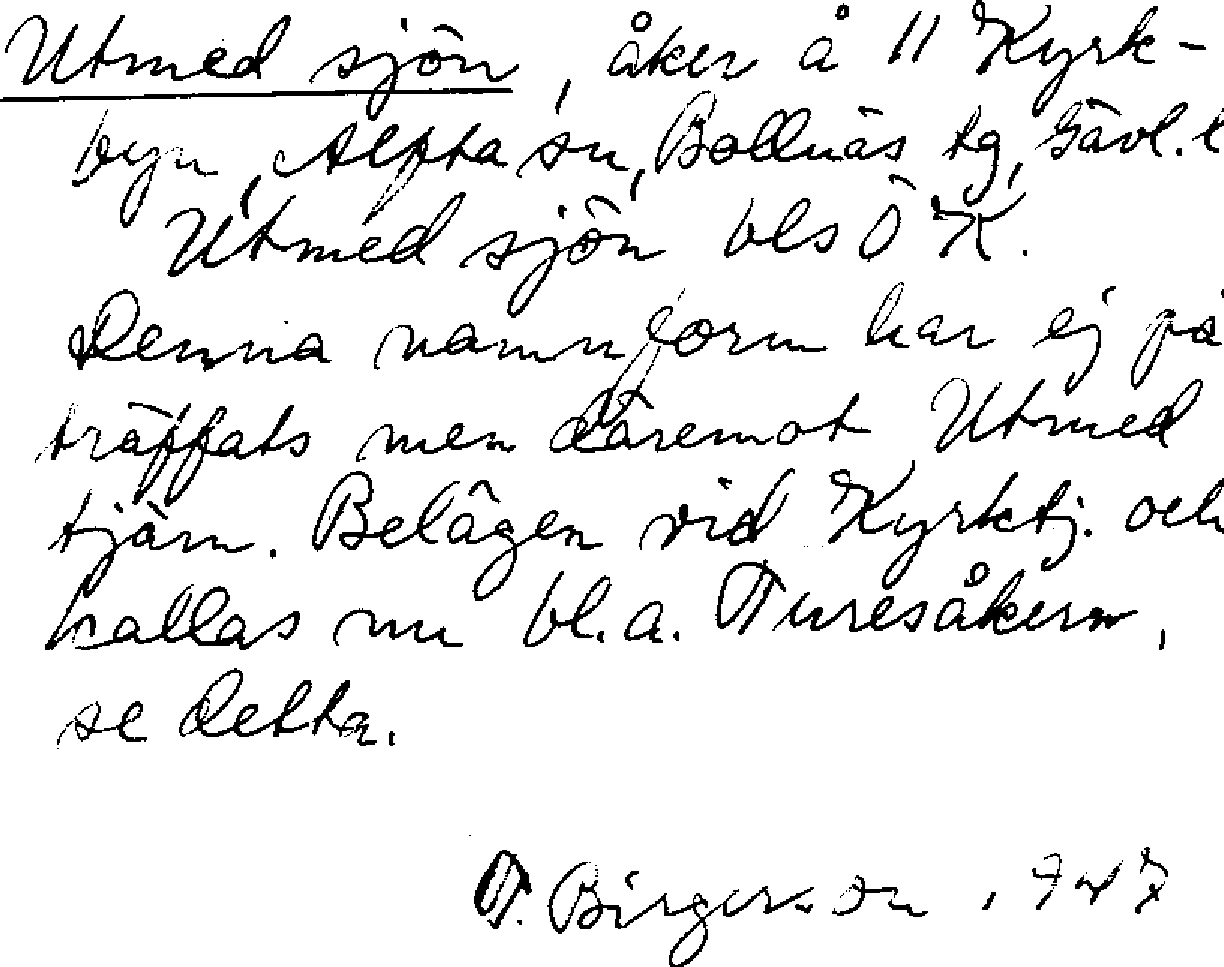 Utmed sjön, åker å 11 Kyrk-
byn, Alfta sn, Bollnäs tg, Gävl. l
Utmed sjön bls Ö K.
Denna namnform har ej på
träffats men däremot Utmed
tjärn. Belägen vid Kyrktj. och
kallas nu bl.a. Turesåkern,
se detta.
T. Birgersson, 1947